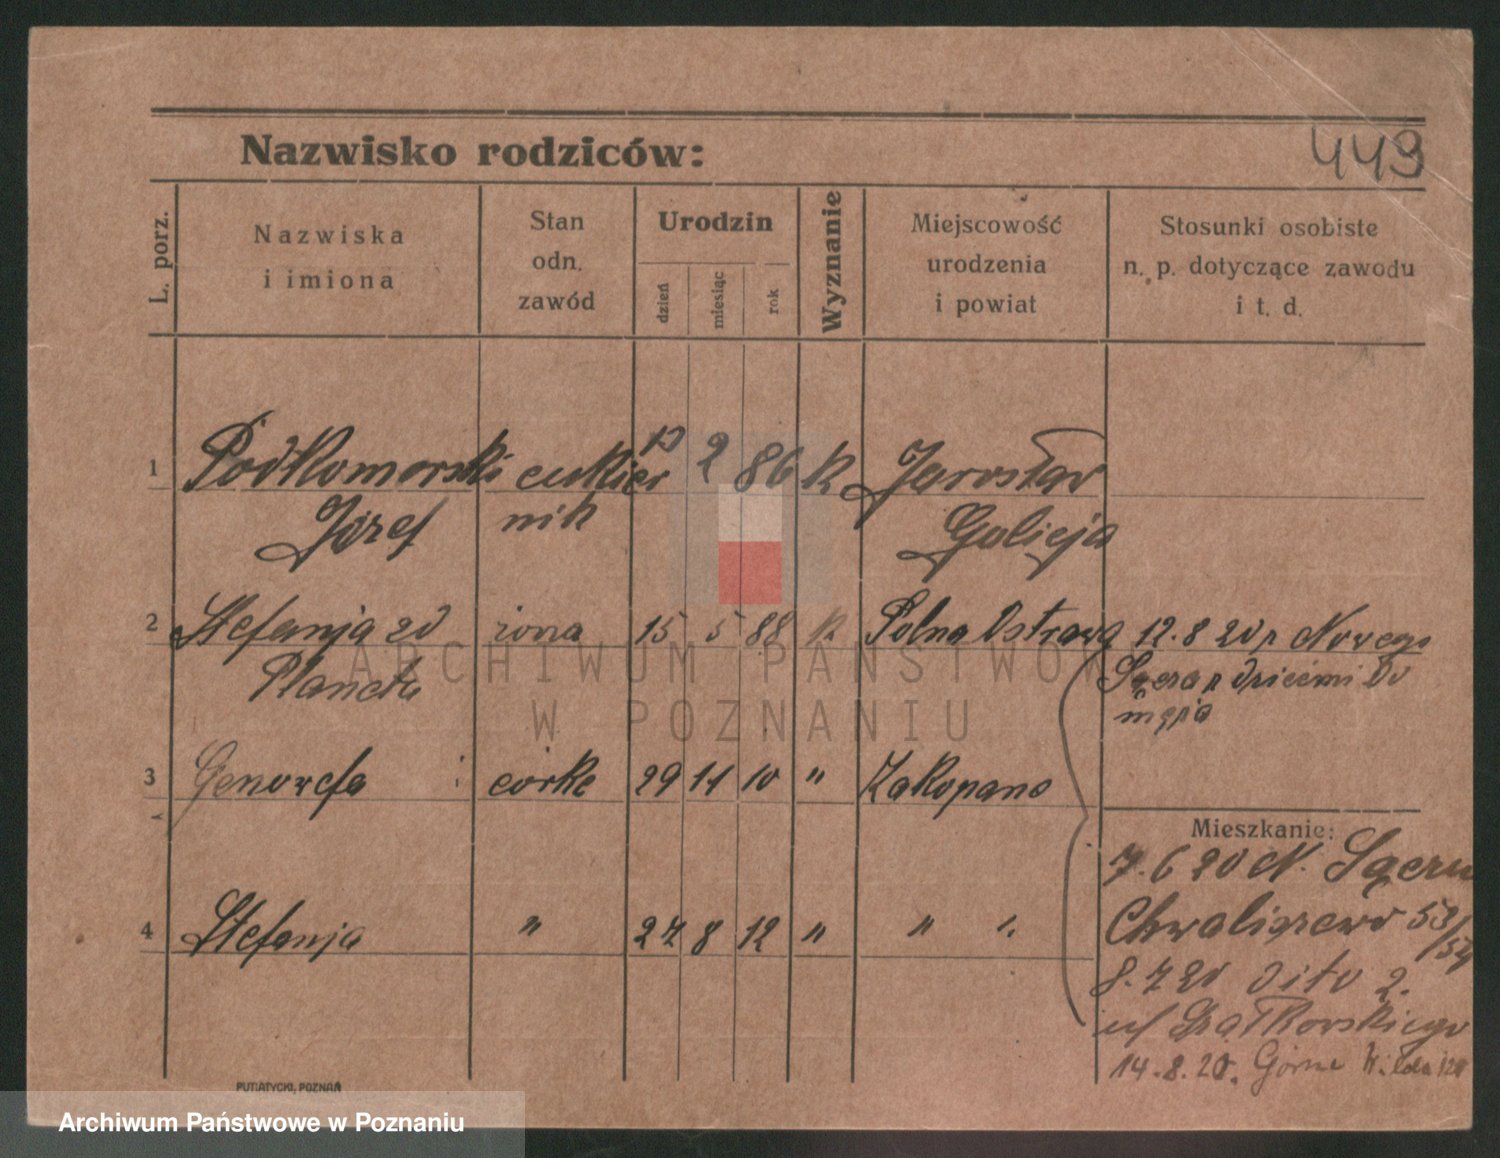 449
Nazwisko rodziców:
L. porz.
Nazwiska
i imiona
Stan
odn.
zawód
Urodzin
dzień
miesiąc
rok
Wyznanie
Miejscowość
urodzenia
i powiat
Stosunki osobiste
n. p. dotyczące zawodu
i t. d.
1 Podkomorski cukier 2 86 k Jarosław
Józef nik Galicja
2 Stefanja zd żona 15 5 88 k Polna Ostrawa 12.8 20 z Nowego
Plancta Sącza z dziećmi do
męża
3 Genowefa córka 29 11 10 " Zakopane
4 Stefanja " 27 8 12 " " "
Mieszkanie:
7.6 20 N. Sącza
Chwaliszewo 53/54
8.7 20 dito 2.
u/
14.8.20. Górna Wilda
PUTIATYCKI, POZNAŃ
ARCHIWUM PAŃSTWOW
W POZNANIU
Archiwum Państwowe w Poznaniu